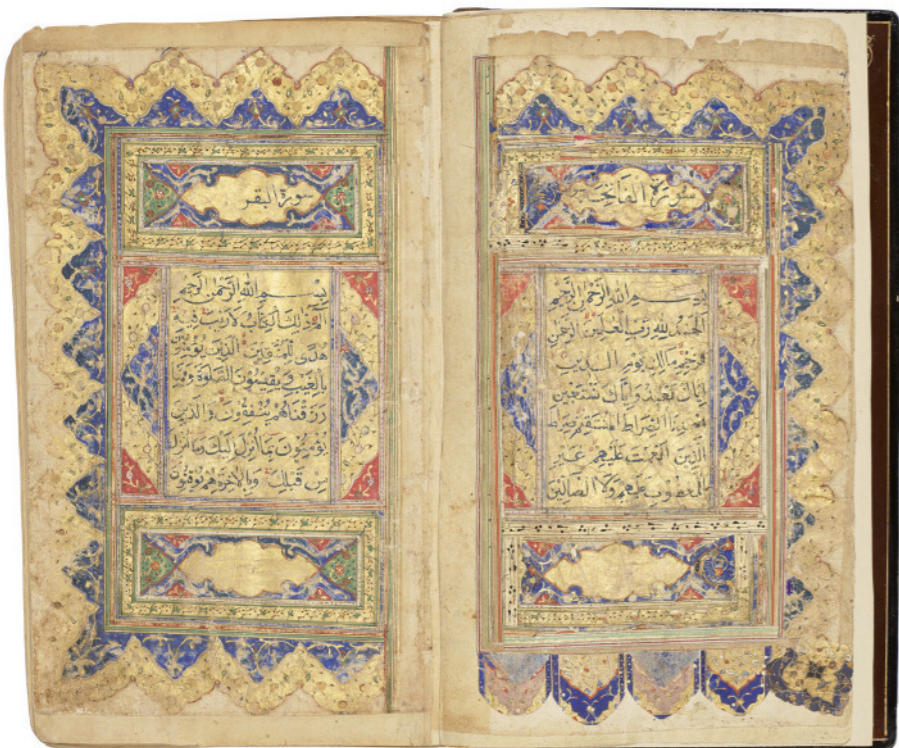 سورة الفاتحة
بسم الله الرحمن الرحيم
الحمد لله رب العالمين الرحمن
الرحيم مالك يوم الدين
اياك نعبد واياك نستعين
اهدنا الصراط المستقيم صراط
الذين انعمت عليهم غير
المغضوب عليهم ولا الضالين
سورة البقر
بسم الله الرحمن الرحيم
الم ذلك الكتاب لا ريب فيه
هدى للمتقين الذين يؤمنون
بالغيب ويقيمون الصلوة ومما
رزقناهم ينفقون والذين
يؤمنون بما أنزل اليك وما انزل
من قبلك وبالاخرة هم يوقنون